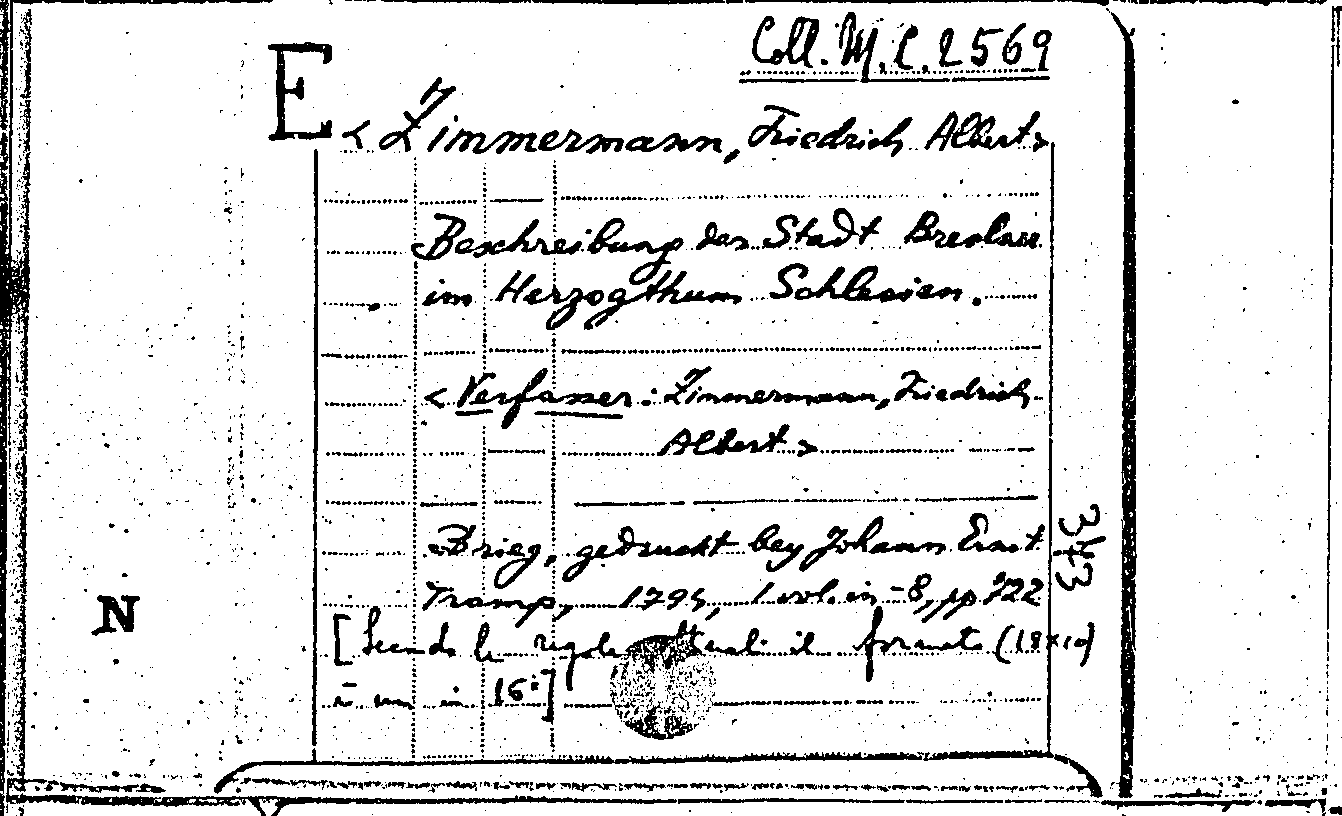 Coll. M. C. 2569
E
< Zimmermann, Friedrich Albert>
Beschreibung der Stadt Breslau
im Herzogthum Schlesien.
< Verfasser: Zimmermann, Friedrich
Albert >
Brieg, gedruckt bey Johann Ernst
Tramp, 1794, 1 vol. in -8, pp 522
343
N
[Secondo le regole attuali il formato (18x10)
è un in 16°]